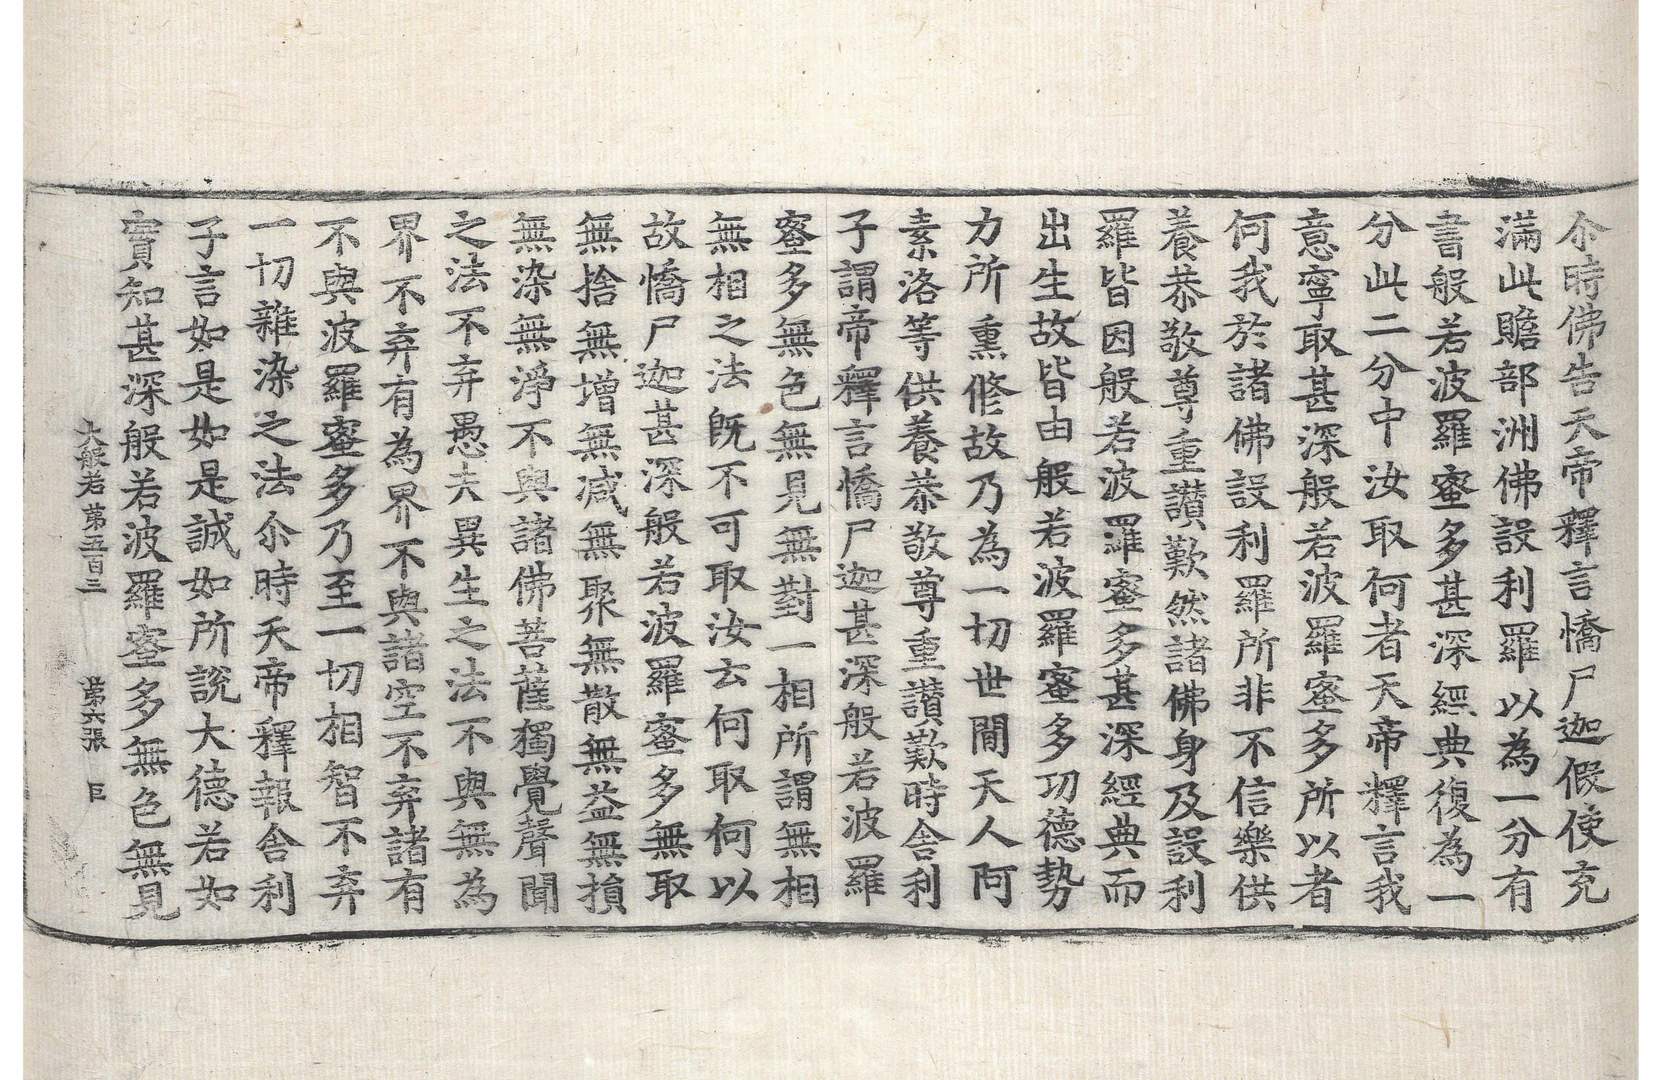 尒時佛告天帝釋言憍尸迦假使充
滿此贍部洲佛設利羅以為一分有
書般若波羅蜜多甚深經典復為一
分此二分中汝取何者天帝釋言我
意寧取甚深般若波羅蜜多所以者
何我於諸佛設利羅所非不信樂供
養恭敬尊重讚歎然諸佛身及設利
羅皆因般若波羅蜜多甚深經典而
出生故皆由般若波羅蜜多功德勢
力所熏修故乃為一切世間天人阿
素洛等供養恭敬尊重讚歎時舍利
子謂帝釋言憍尸迦甚深般若波羅
蜜多無色無見無對一相所謂無相
無相之法既不可取汝云何取何以
故憍尸迦甚深般若波羅蜜多無取
無捨無增無減無聚無散無益無損
無染無淨不與諸佛菩薩獨覺聲聞
之法不弃愚夫異生之法不與無為
界不弃有為界不與諸空不弃諸有
不與波羅蜜多乃至一切相智不弃
一切雜染之法尒時天帝釋報舍利
子言如是如是誠如所說大德若如
實知甚深般若波羅蜜多無色無見
大般若第五百二 第六張 巨